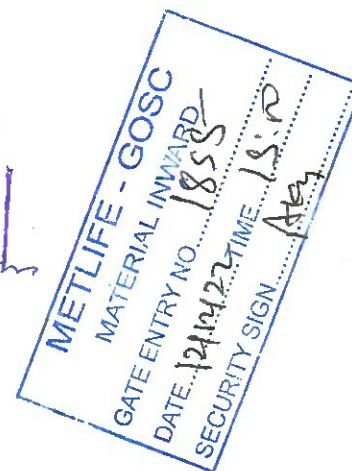 METLIFE - GOSC
MATERIAL INWARD
GATE ENTRY NO. 1855
DATE... 12/12/22 TIME
SECURITY SIGN